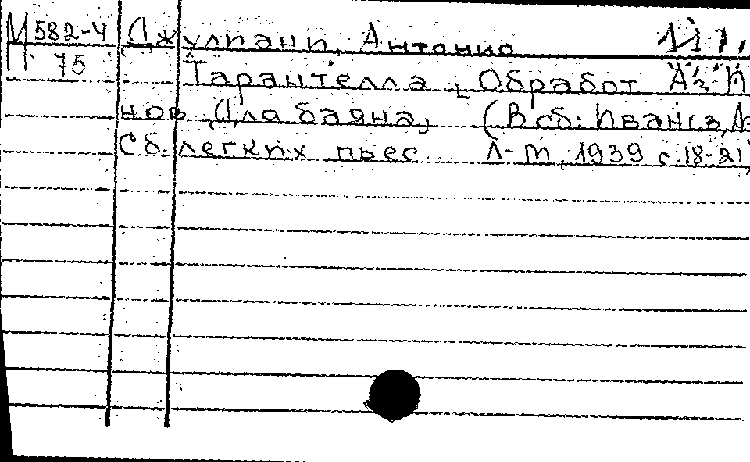 М 582-4 Джулиани, Антонио
П 75 Тарантелла, Обработ А.
нов (Для баяна) (В сб: Иванов, А.
Сб. легких пьес. Л-М, 1939 с. 18-21)